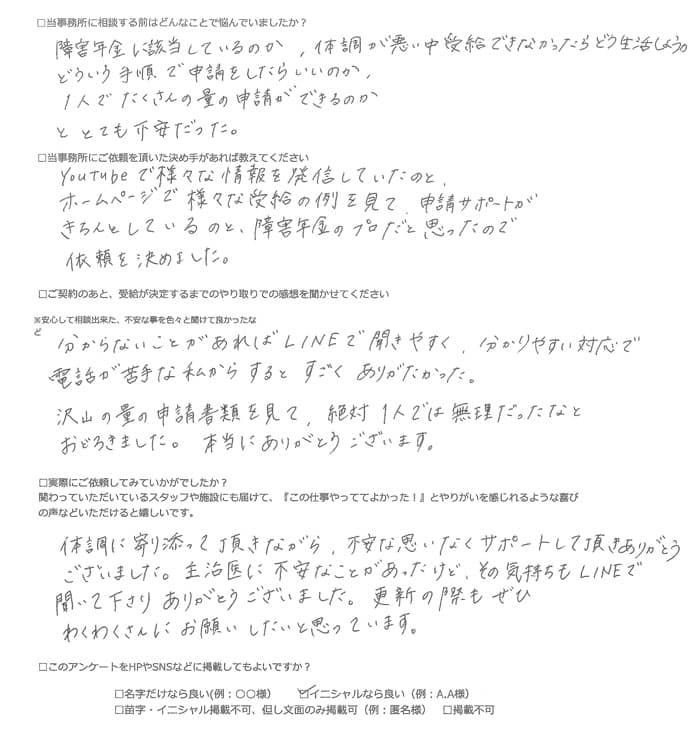 □当事務所に相談する前はどんなことで悩んでいましたか？
障害年金に該当しているのか，体調が悪い中受給できなかったらどう生活しよう。
どういう手順で申請をしたらいいのか，
1人でたくさんの量の申請ができるのか
ととても不安だった。
□当事務所にご依頼を頂いた決め手があれば教えてください
Youtubeで様々な情報を発信していたのと，
ホームページで様々な受給の例を見て，申請サポートが
きちんとしているのと、障害年金のプロだと思ったので
依頼を決めました。
□ご契約のあと、受給が決定するまでのやり取りでの感想を聞かせてください
※安心して相談出来た、不安な事を色々と聞けて良かったな
ど
分からないことがあればLINEで聞きやすく，分かりやすい対応で
電話が苦手な私からするとすごくありがたかった。
沢山の量の申請書類を見て，絶対1人では無理だったなと
おどろきました。本当にありがとうございます。
□実際にご依頼してみていかがでしたか？
関わっていただいているスタッフや施設にも届けて、『この仕事やっててよかった！』とやりがいを感じれるような喜び
の声などいただけると嬉しいです。
体調に寄り添って頂きながら，不安な思いなくサポートして頂きありがとう
ございました。主治医に不安なことがあったけど，その気持ちもLINEで
聞いて下さりありがとうございました。更新の際もぜひ
わくわくさんにお願いしたいと思っています。
□このアンケートをHPやSNSなどに掲載してもよいですか？
□名字だけなら良い(例：〇〇様） ☑イニシャルなら良い（例：A.A様）
□苗字・イニシャル掲載不可、但し文面のみ掲載可（例：匿名様） □掲載不可